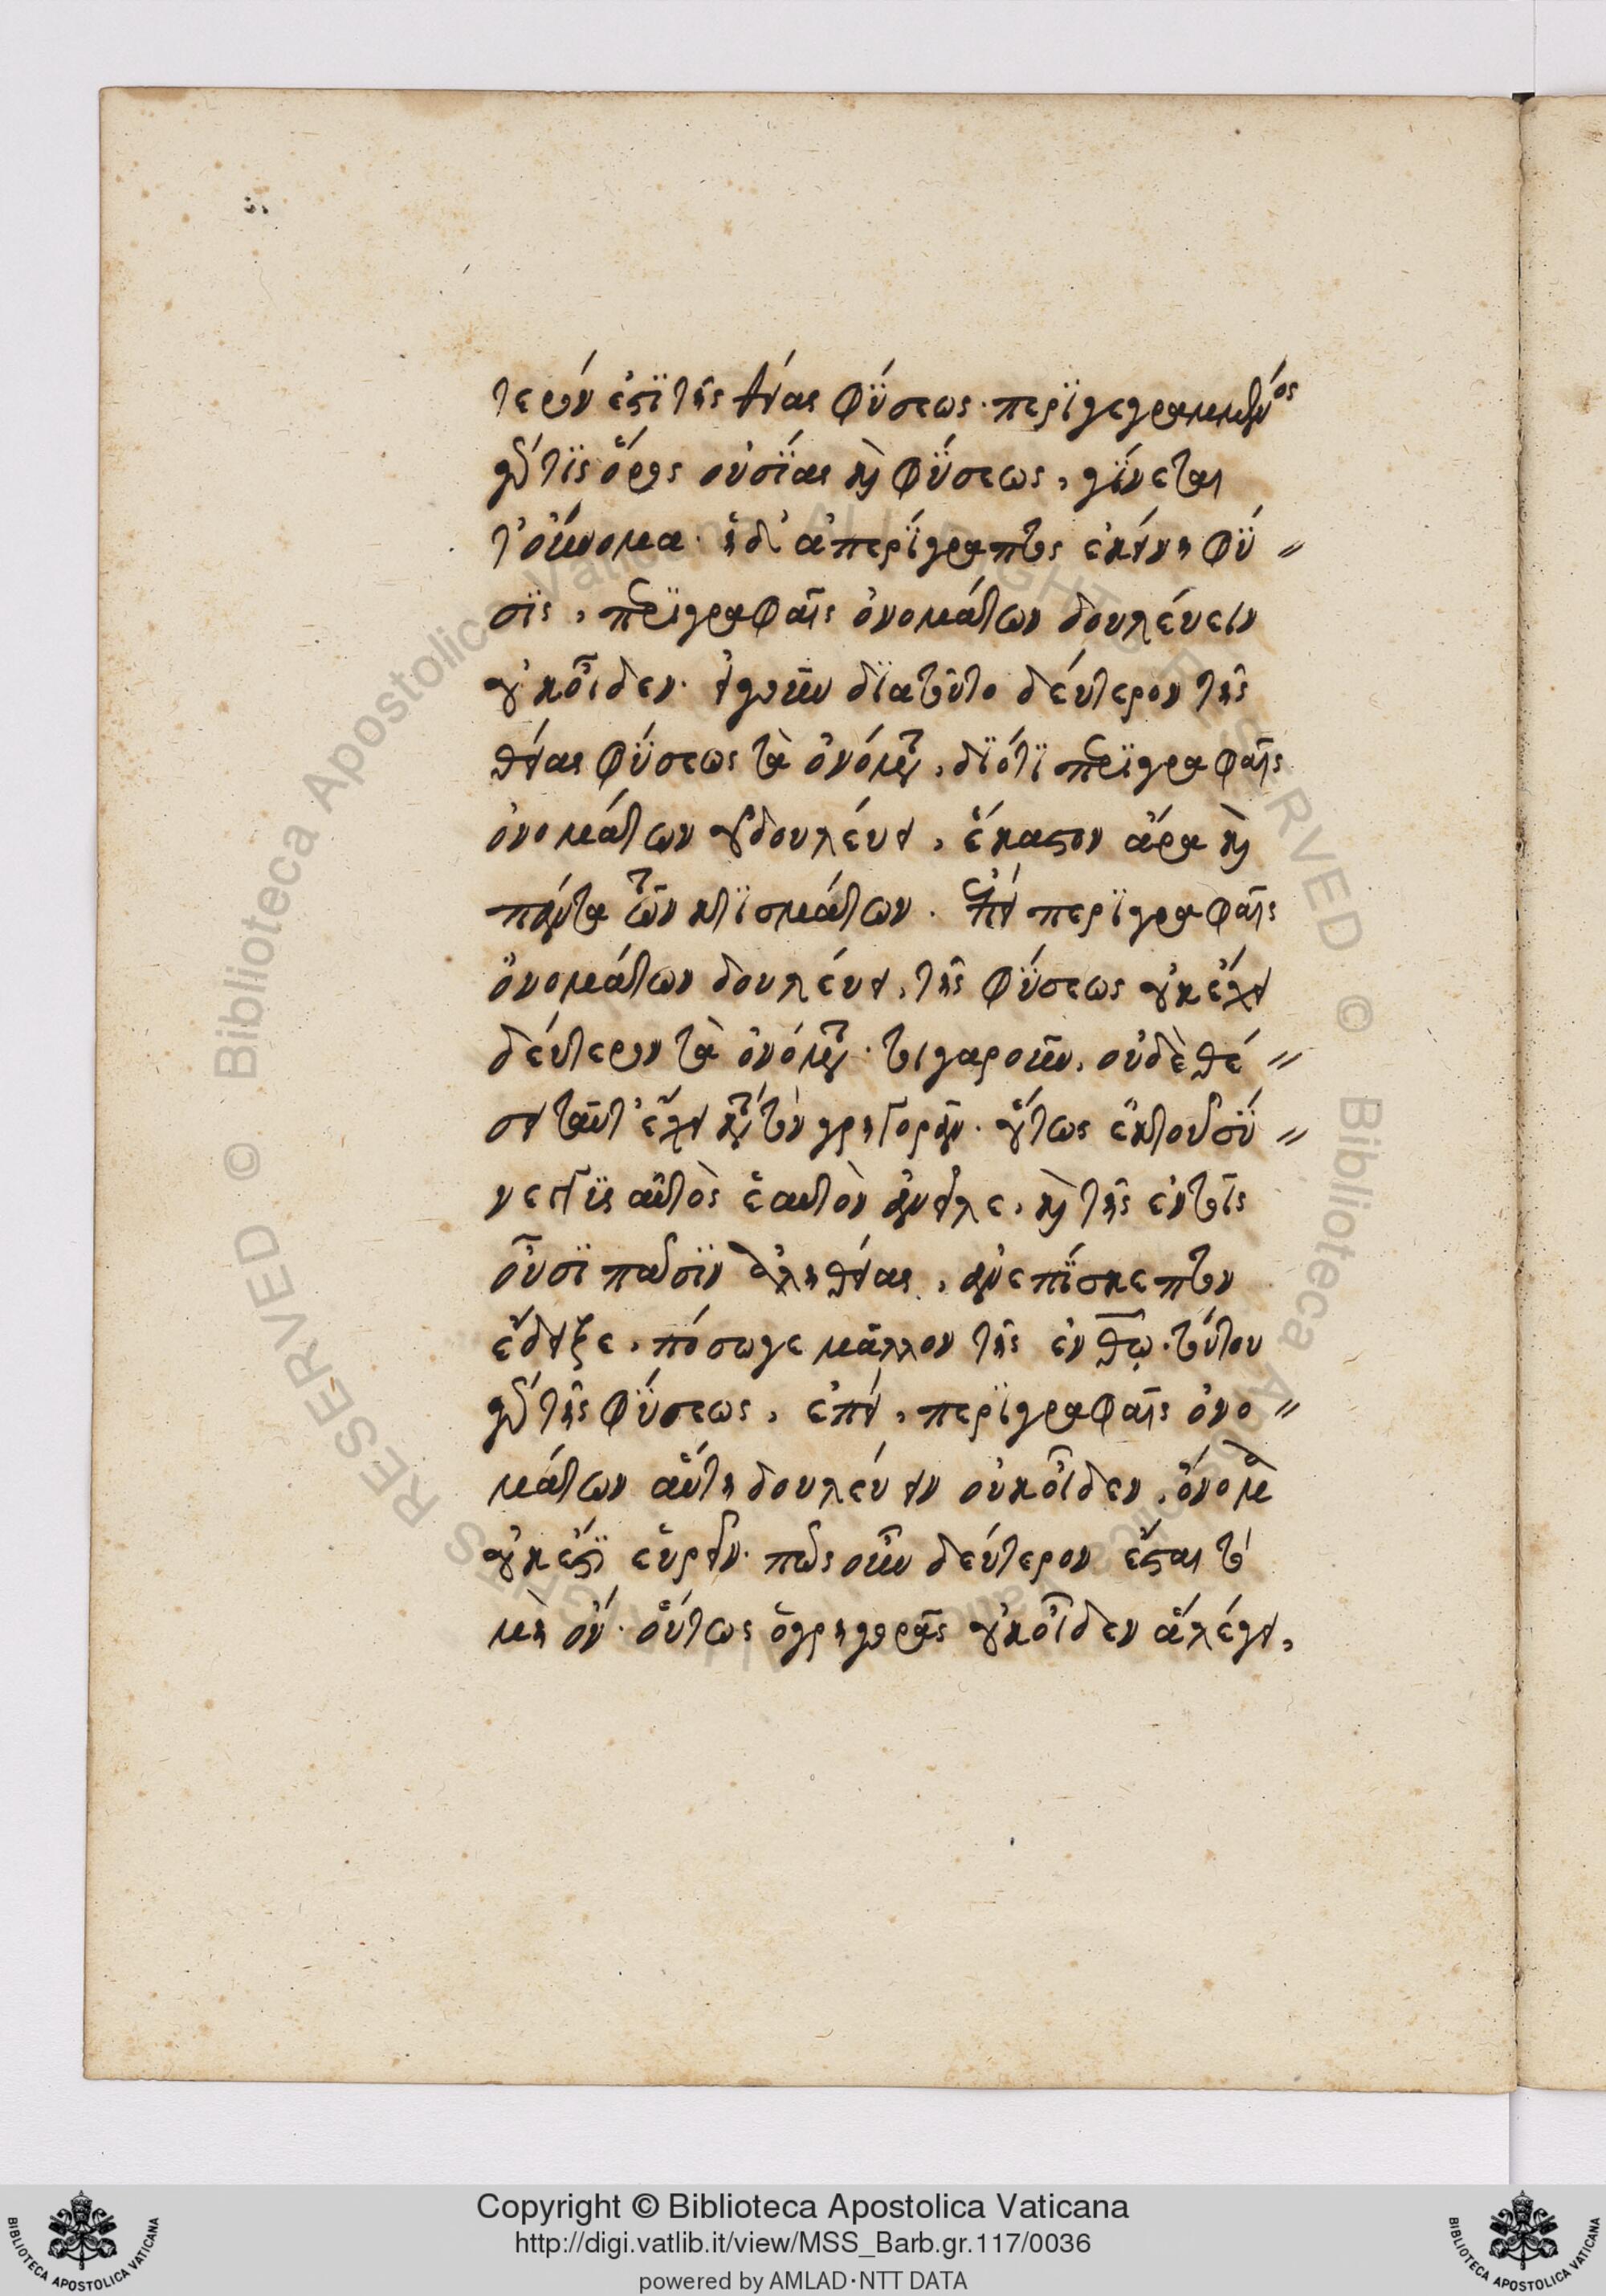 τερόν ἐστὶ τῆς θείας φύσεως· περιγεγραμμένος
γάρ τις ὅρος οὐσίας καὶ φύσεως, γίνεται
τ' οὔνομα· ἡ δ' ἀπερίγραπτος ἐκείνη φύ=
σις, περιγραφαῖς ὀνομάτων δουλέυειν
οὐκ οἶδεν· εἰ γοῦν διατοῦτο δέυτερον τῆς
θείας φύσεως τὰ ὀνόματα, διότι περιγραφαῖς
ὀνομάτων οὐ δουλέυει, ἕκαστον ἄρα καὶ
πάντα τῶν κτισμάτων. ἐπεὶ περιγραφαῖς
ὀνομάτων δουλέυει, τῆς φύσεως οὐκ ἔχει
δέυτερον τὰ ὀνόματα· τοιγαροῦν, οὐδὲ θέ=
σει ταῦτ' ἔχει κατὰ τὸν γρηγορᾶν· οὕτως
αὐτὸς ἑαυτὸν ἀνεῖλε, καὶ τῆς ἐν τοῖς
οὖσι πᾶσιν ἀληθείας, ἀνεπίσκεπτον
ἔδειξε, πόσωγε μᾶλλον τῆς ἐν θῶ· τούτου
γάρ τῆς φύσεως, ἐπεὶ, περιγραφαῖς ὀνο=
μάτων αὕτη δουλέυειν οὐκ οἶδεν, ὄνομα
οὐκ ἔστι εὑρεῖν· πῶς οὖν δεύτερον ἔσται τὸ
μὴ ὄν· οὕτως ὁ γρηγορᾶς οὐκ οἶδεν ἃ λέγει,
Copyright © Biblioteca Apostolica Vaticana
http://digi.vatlib.it/view/MSS_Barb.gr.117/0036
powered by AMLAD·NTT DATA
BIBLIOTECA APOSTOLICA VATICANA
BIBLIOTECA APOSTOLICA VATICANA